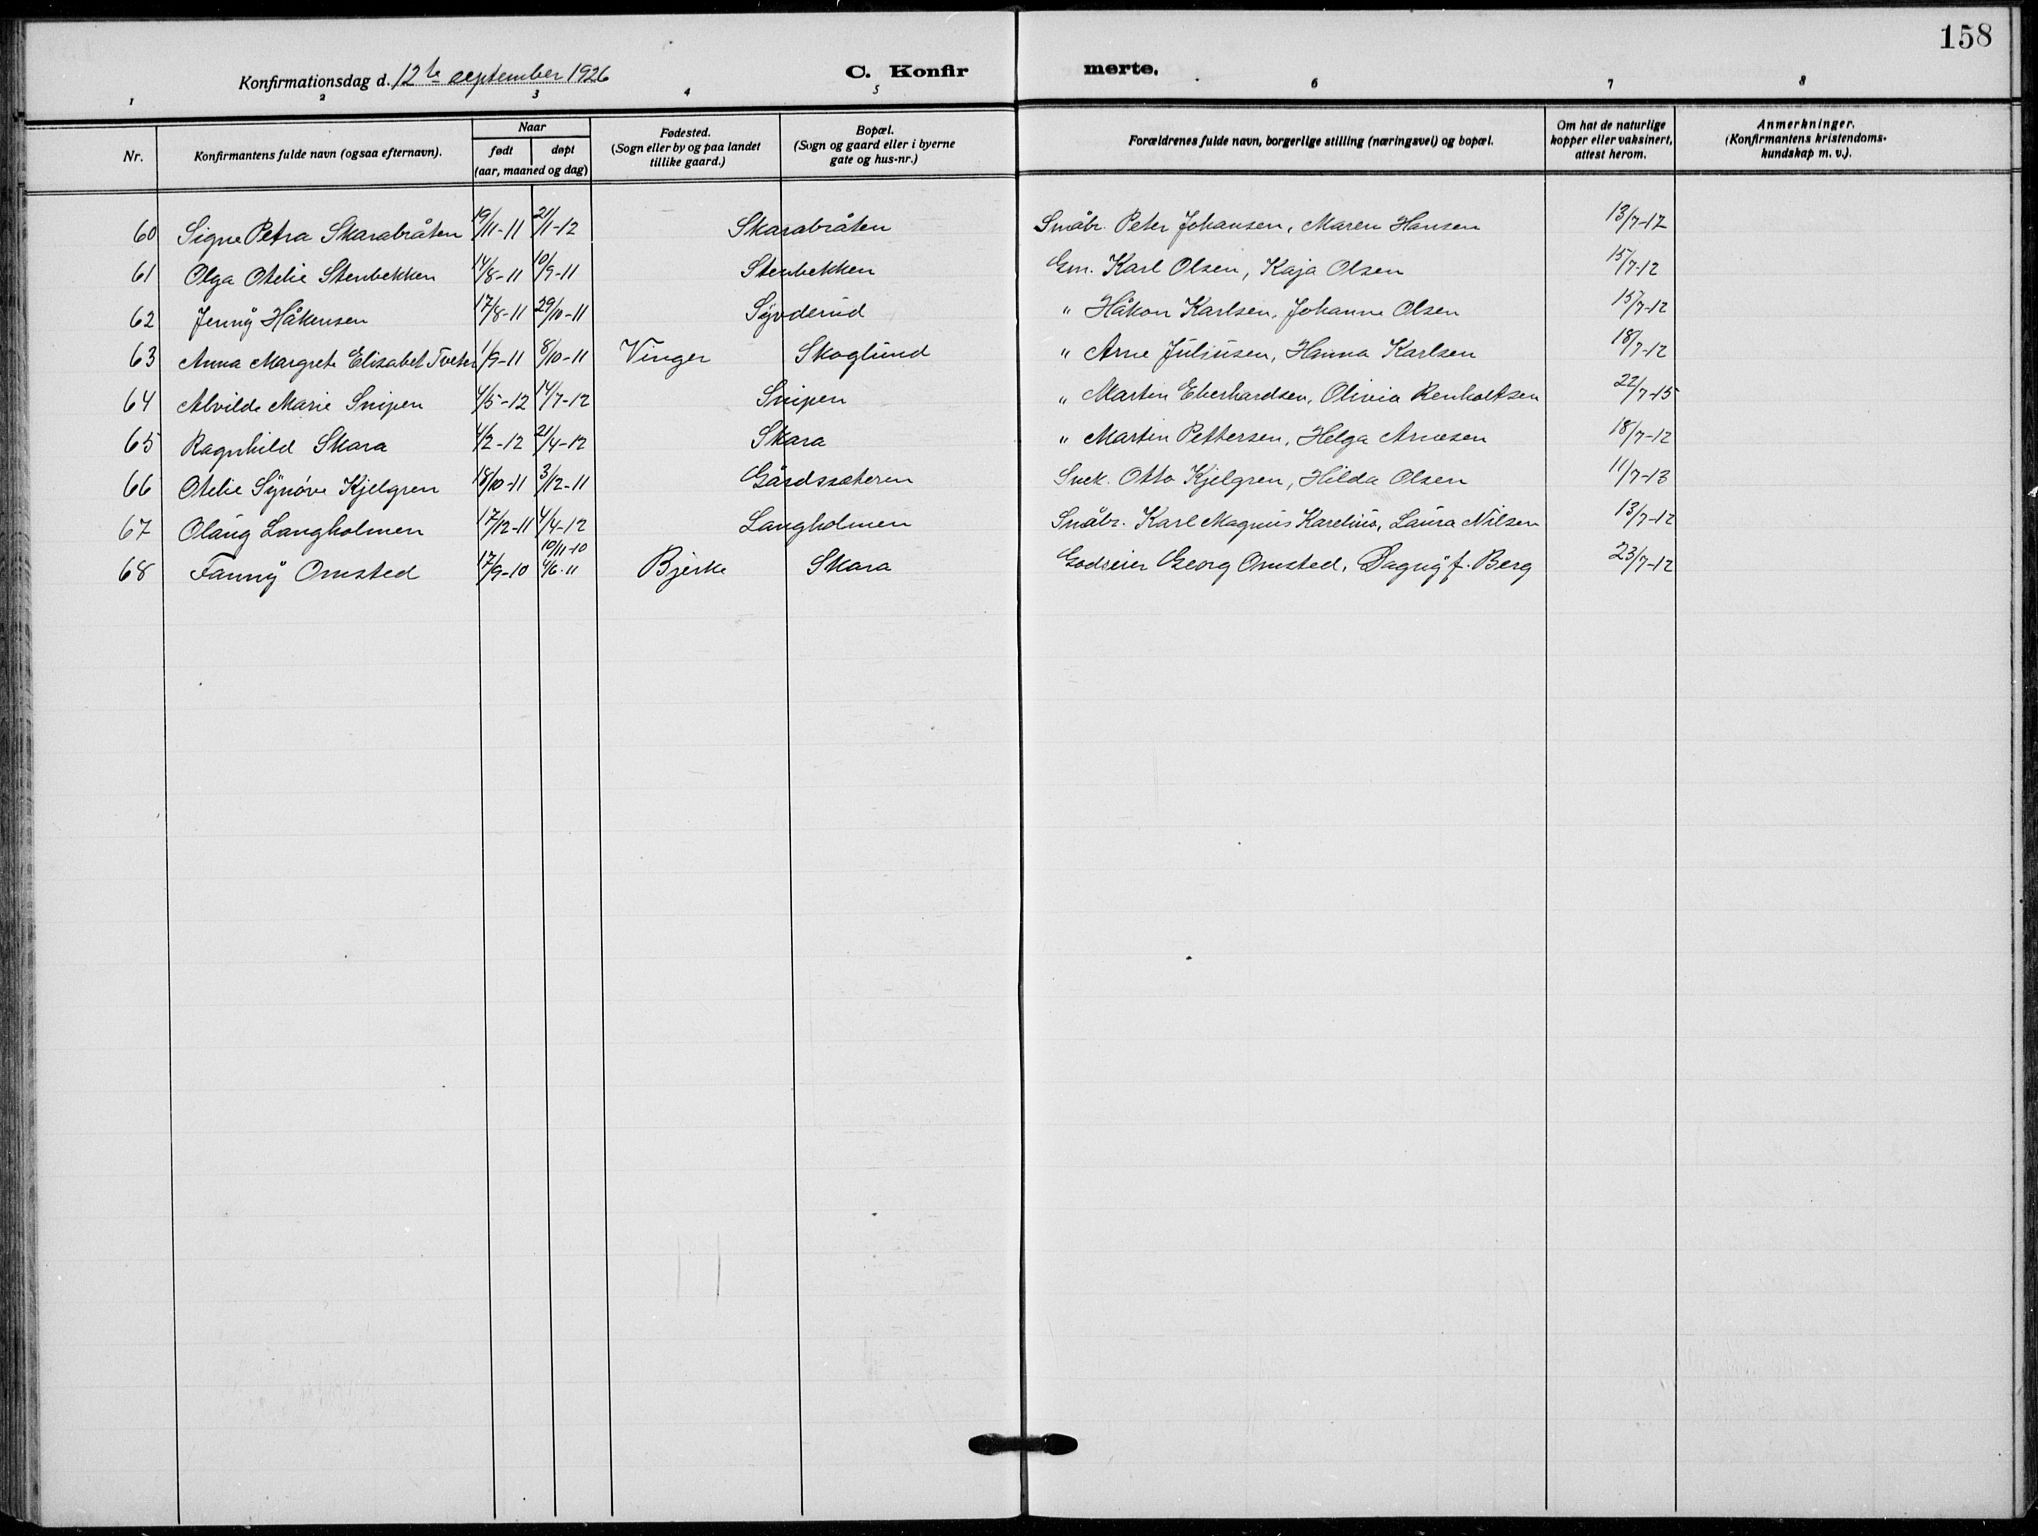 158
Konfirmationsdag d. 12te september 1926 C. Konfir merte.
1 2 3 4 5 6 7 8
Nr. Konfirmantens fulde navn (ogsaa efternavn). Naar født døpt (aar, maaned og dag) Fødested. (Sogn eller by og paa landet tillike gaard.) Bopæl. (Sogn og gaard eller i byerne gate og hus-nr.) Forældrenes fulde navn, borgerlige stilling (næringsvei) og bopæl. Om hat de naturlige kopper eller vaksinert, attest herom. Anmerkninger. (Konfirmantens kristendoms-kundskap m. v.).
60 Signe Petra Skarabråten 19/11-11 21/1-12 Skarabråten Småbr. Peter Johansen, Maren Hansen 13/7-12
61 Olga Otelie Stenbekken 14/8-11 10/9-11 Stenbekken Gm. Karl Olsen, Kaja Olsen 15/7-12
62 Jenny Håkensen 17/8-11 29/10-11 Synderud " Håkon Karlsen, Johanne Olsen 15/7-12
63 Anna Margrete Elisabet Tveter 1/9-11 8/10-11 Vinger Skoglund " Arne Juliusen, Hanna Karlsen 18/7-12
64 Alvilde Marie Snipen 4/5-12 14/7-12 Snipen " Martin Eberhardsen, Olivia Renholtsen 22/7-15
65 Ragnhild Skara 4/2-12 21/4-12 Skara " Martin Pettersen, Helga Arnesen 18/7-12
66 Otelie Synøve Kjelgren 18/10-11 3/12-11 Gårdssæteren Snek. Otto Kjelgren, Hilda Olsen 11/7-13
67 Olaug Langholmen 17/12-11 4/4-12 Langholmen Småbr. Karl Magnus Karelius, Laura Nilsen 13/7-12
68 Fanny Omsted 17/9-10 10/11-10 4/6-11 Bjerke Skara Godseier Georg Omsted, Dagny f. Berg 23/7-12